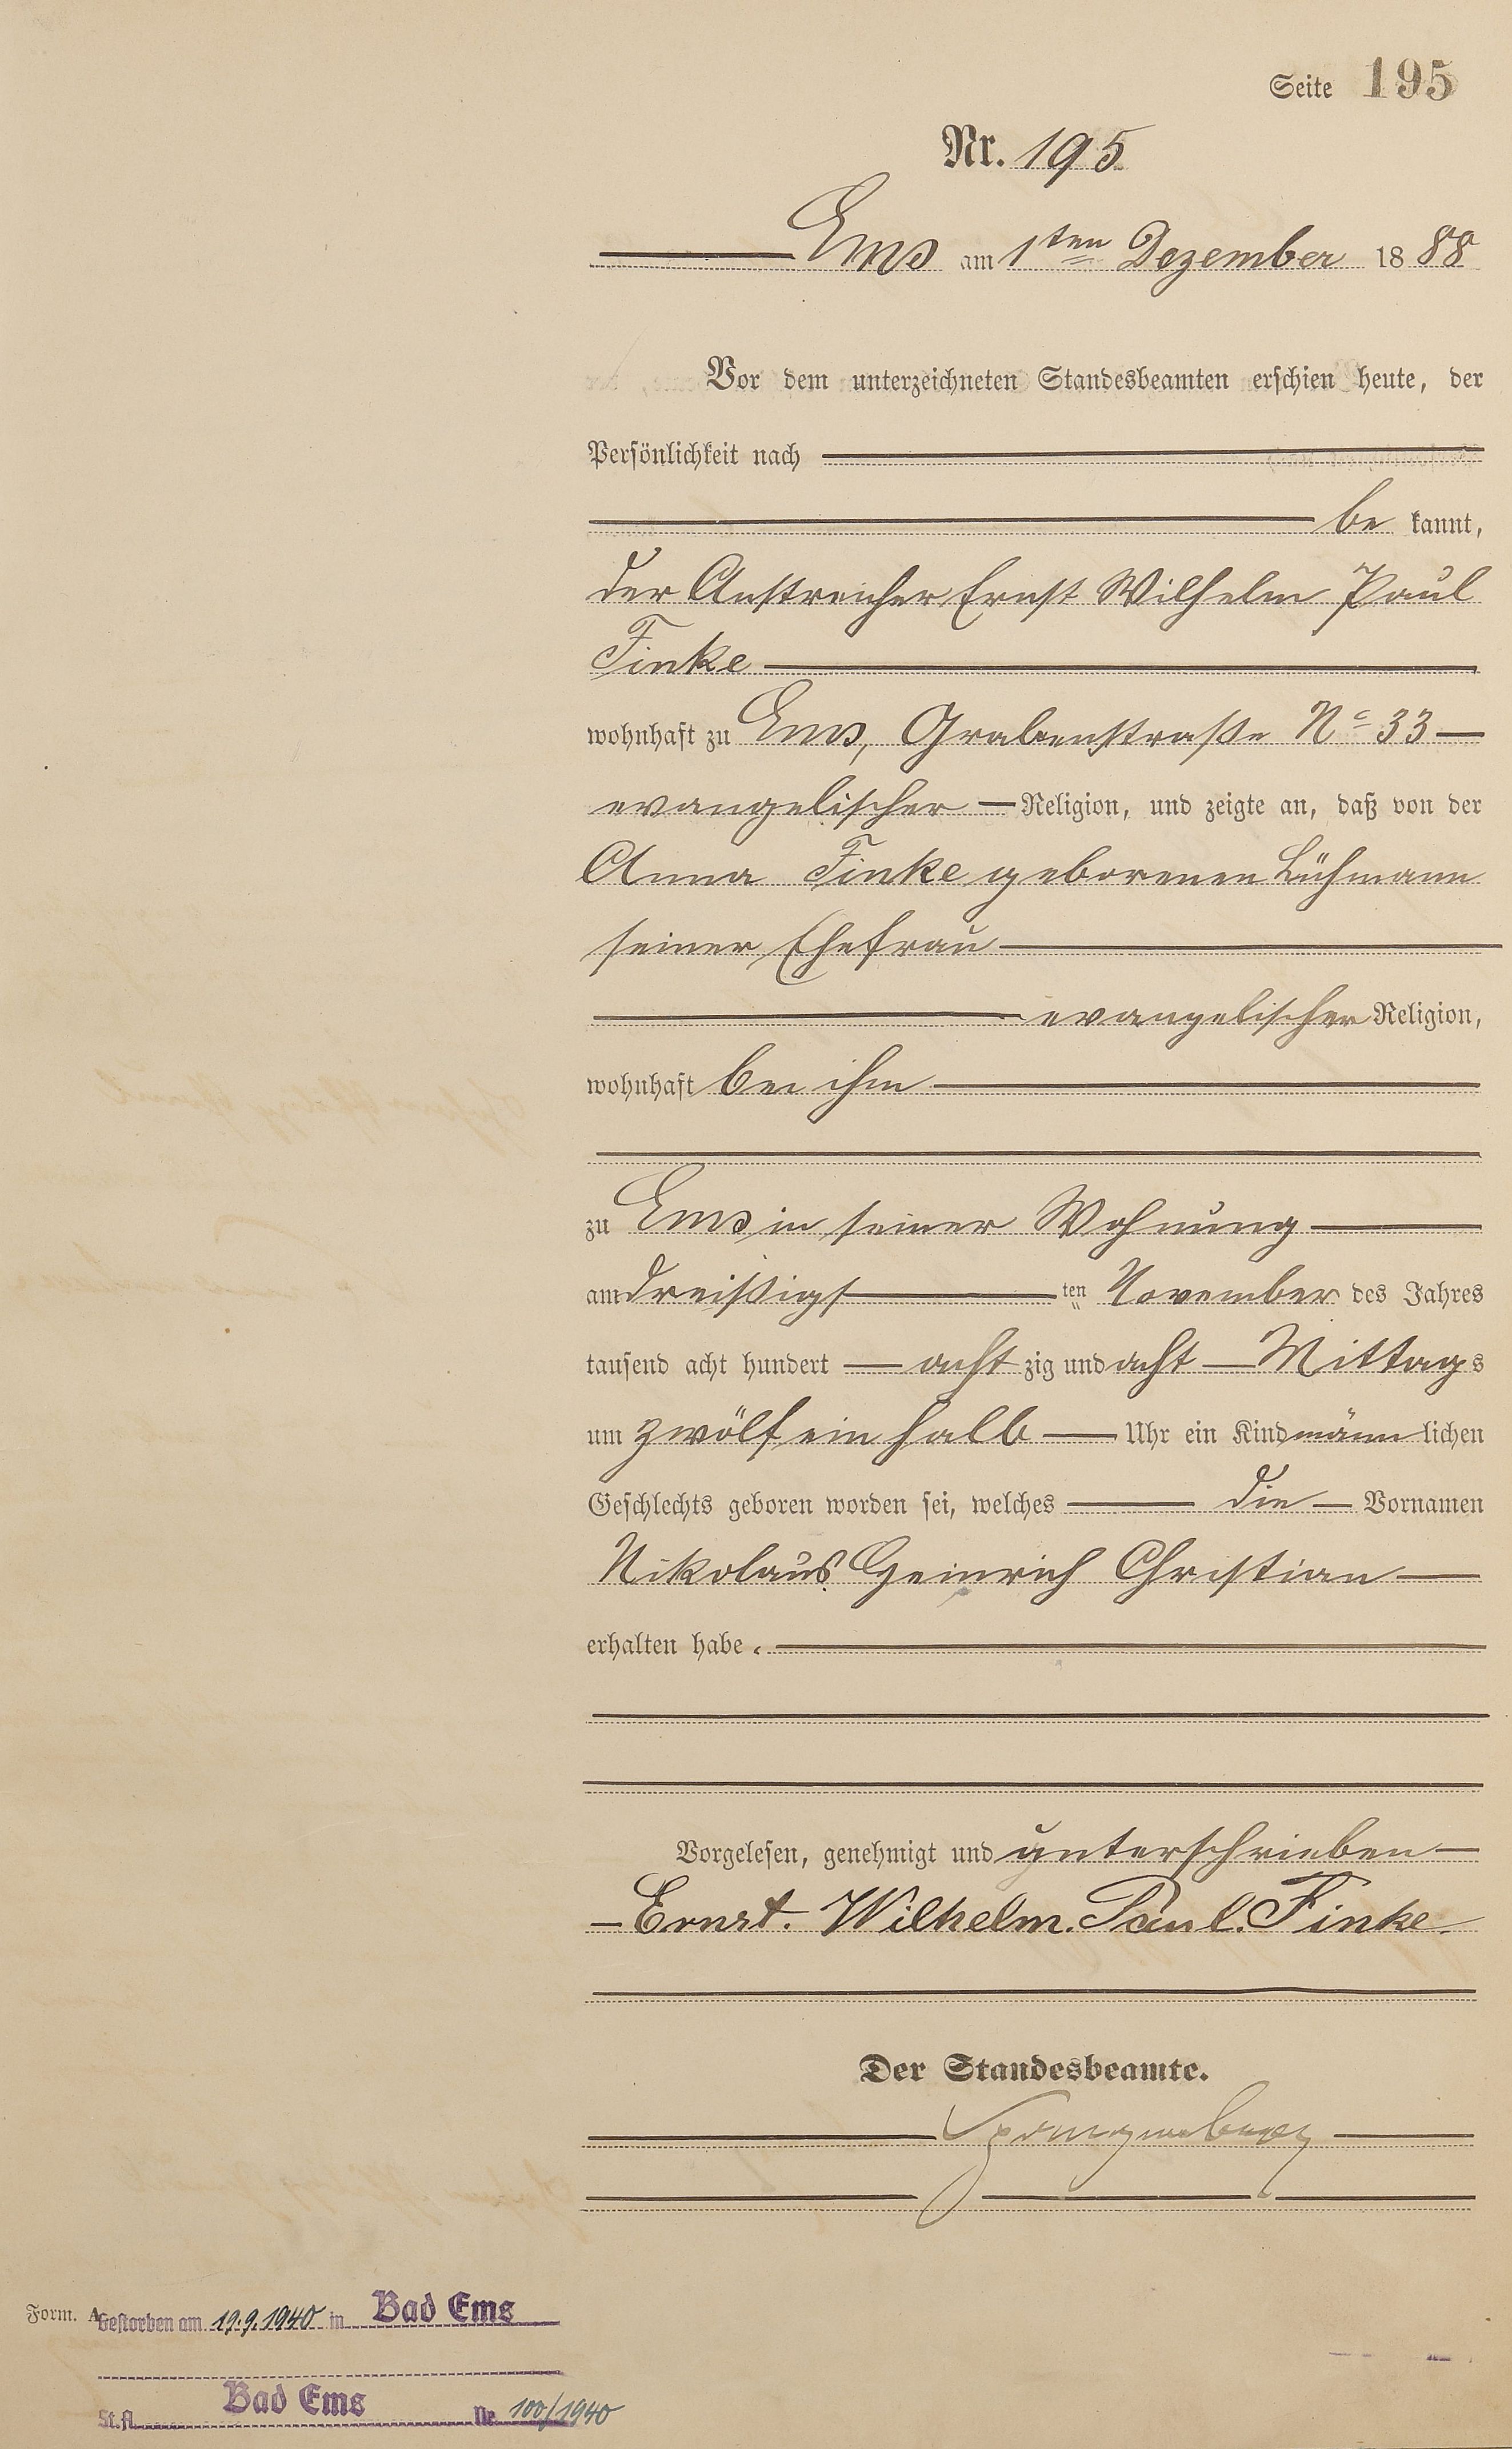 Seite 195
Nr. 195
Ems am 1ten Dezember 1888
Vor dem unterzeichneten Standesbeamten erschien heute, der
Persönlichkeit nach
be kannt,
der Anstreicher Ernst Wilhelm Paul
Finke
wohnhaft zu Ems, Grabenstraße No 33
evangelischer Religion, und zeigte an, daß von der
Anna Finke geborenen Lühmann
seiner Ehefrau
evangelischer Religion,
wohnhaft bei ihm
zu Ems in seiner Wohnung
am dreißigst ten November des Jahres
tausend acht hundert acht zig und acht Mittags
um zwölf ein halb Uhr ein Kind männ lichen
Geschlechts geboren worden sei, welches die Vornamen
Nikolaus Heinrich Christian
erhalten habe.
Vorgelesen, genehmigt und unterschrieben
Ernst. Wilhelm. Paul. Finke.
Der Standesbeamte.
Form. A.
Gestorben am 19.9.1940 in Bad Ems
St.A. Bad Ems Nr. 100/1940